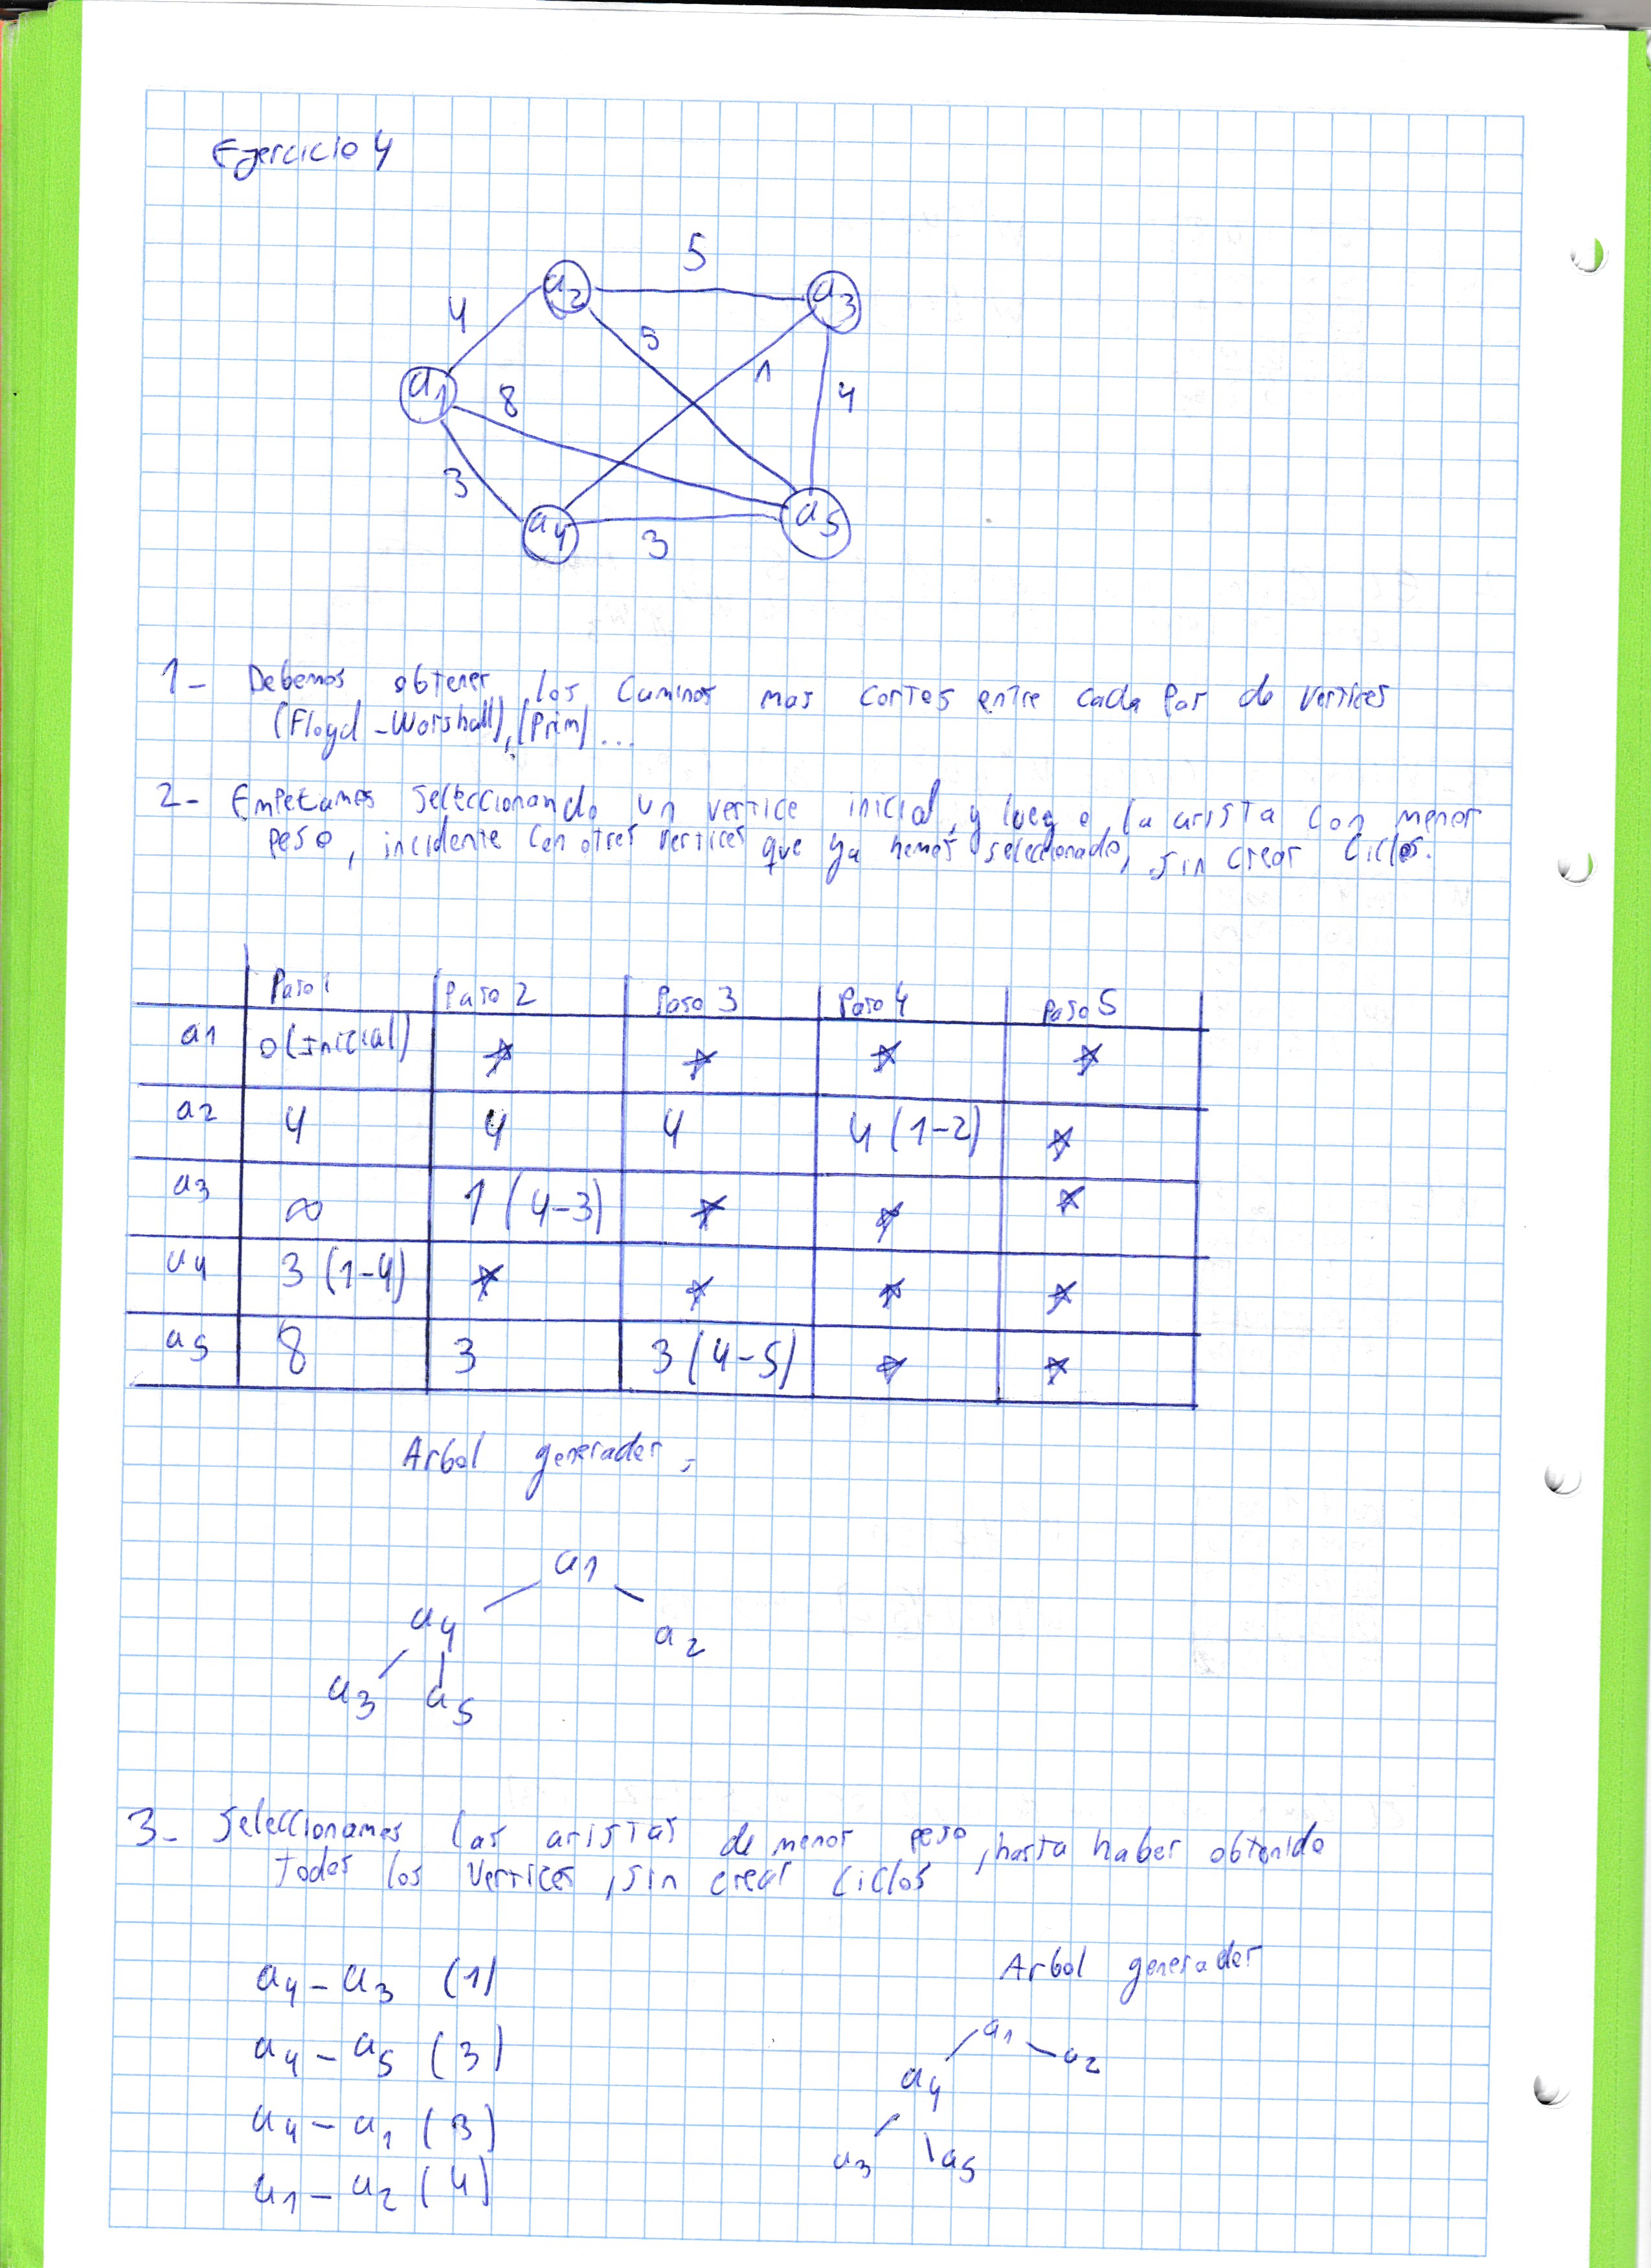 Ejercicio 4
5
4
a2
a3
5
1
a1
8
4
3
a4
a5
3
1- Debemos obtener los Caminos mas cortos entre cada par de vertices
(Floyd-Worshall), (Prim) ...
2- Empezamos seleccionando un vertice inicial, y luego, la arista con menor
peso, incidente con otros vertices que ya hemos seleccionado, sin crear ciclos.
Paso 1 Paso 2 Paso 3 Paso 4 Paso 5
a1 0 (Inicial) * * * *
a2 4 4 4 4 (1-2) *
a3 ∞ 1 (4-3) * * *
a4 3 (1-4) * * * *
a5 8 3 3 (4-5) * *
Arbol generador:
a1
a4
a2
a3 a5
3- Seleccionamos las aristas de menor peso, hasta haber obtenido
todos los vertices, sin crear ciclos
Arbol generador
a4 - a3 (1)
a4 - a5 (3)
a4 - a1 (3)
a1 - a2 (4)
a1
a2
a4
a3 a5